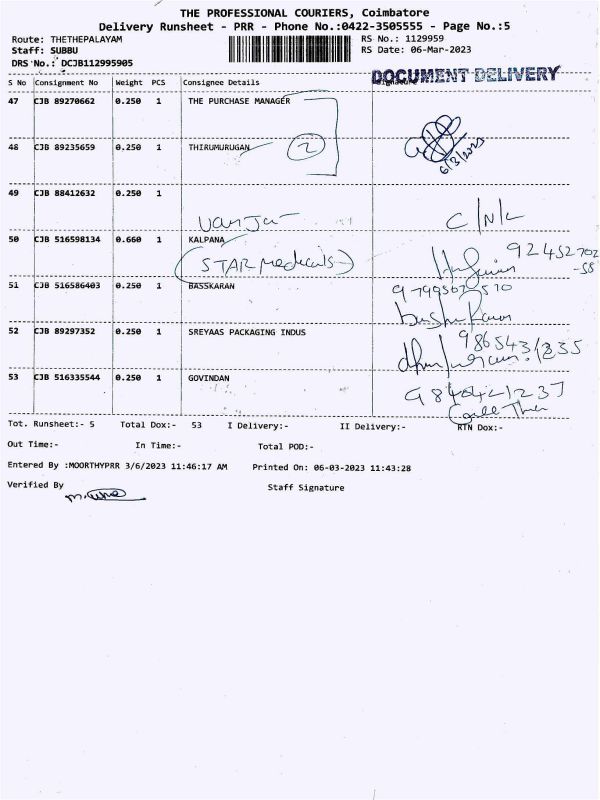 THE PROFESSIONAL COURIERS, Coimbatore
Delivery Runsheet - PRR - Phone No.:0422-3505555 - Page No.:5
Route: THETHEPALAYAM RS No.: 1129959
Staff: SUBBU RS Date: 06-Mar-2023
DRS No.: DCJB112995905
DOCUMENT DELIVERY
S No Consignment No Weight PCS Consignee Details Signature
47 CJB 89270662 0.250 1 THE PURCHASE MANAGER
48 CJB 89235659 0.250 1 THIRUMURUGAN 2 6/3/2023
49 CJB 88412632 0.250 1
C/N/L
50 CJB 516598134 0.660 1 KALPANA 92452702
STAR Medicals -58
51 CJB 516586403 0.250 1 BASSKARAN
52 CJB 89297352 0.250 1 SREYAAS PACKAGING INDUS
53 CJB 516335544 0.250 1 GOVINDAN
Tot. Runsheet:- 5 Total Dox:- 53 I Delivery:- II Delivery:- RTN Dox:-
Out Time:- In Time:- Total POD:-
Entered By :MOORTHYPRR 3/6/2023 11:46:17 AM Printed On: 06-03-2023 11:43:28
Verified By Staff Signature